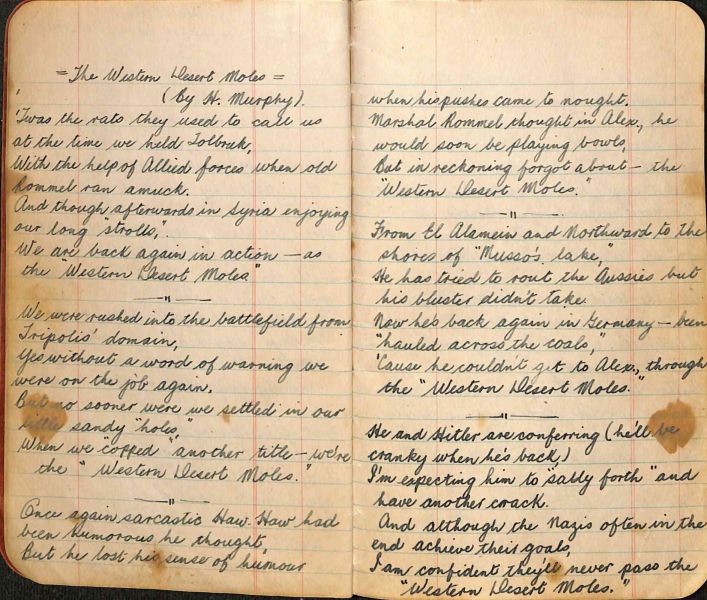 = The Western Desert Moles =
(By H. Murphy).
'Twas the rats they used to call us
at the time we held Tolbruk,
With the help of Allied forces when old
Rommel ran amuck.
And though afterwards in Syria enjoying
our long "strolls,"
We are back again in action — as
the Western Desert Moles"
— " —
We were rushed into the battlefield from
Tripolis' domain,
Yes without a word of warning we
were on the job again.
But no sooner were we settled in our
little sandy "holes,"
When we "copped" another title — we're
the "Western Desert Moles."
— " —
Once again sarcastic Haw-Haw had
been humorous he thought,
But he lost his sense of humour
when his pushes came to nought.
Marshal Rommel thought in Alex., he
would soon be playing bowls,
But in reckoning forgot about — the
"Western Desert Moles."
— " —
From El Alamein and Northward to the
shores of "Musso's lake,"
He has tried to rout the Aussies but
his bluster didn't take.
Now he's back again in Germany — been
"hauled across the coals,"
'Cause he couldn't get to Alex., through
the "Western Desert Moles."
— " —
He and Hitler are conferring (he'll be
cranky when he's back)
I'm expecting him to "sally forth" and
have another crack.
And although the Nazis often in the
end achieve their goals,
I am confident they'll never pass the
"Western Desert Moles."